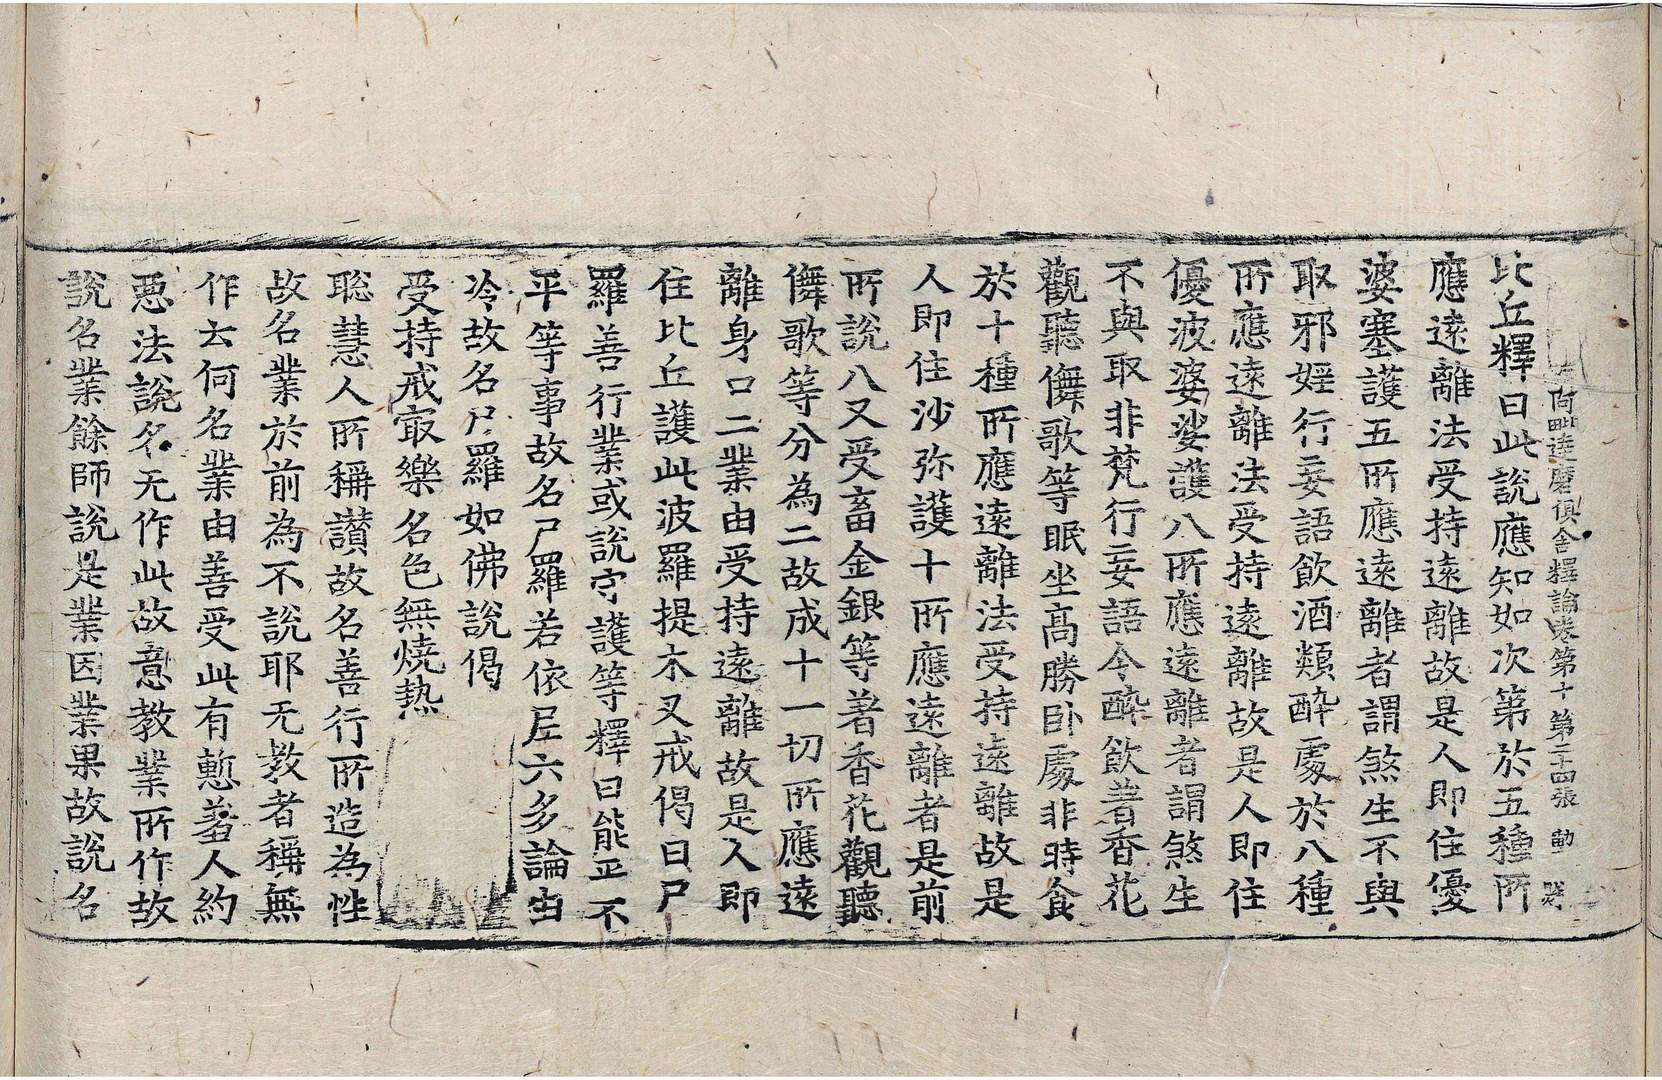 阿毗達磨俱舍釋論卷第十 第二十四張 動
比丘釋曰此說應知如次第於五種所
應遠離法受持遠離故是人即住優
婆塞護五所應遠離者謂煞生不與
取邪婬行妄語飲酒類醉處於八種
所應遠離法受持遠離故是人即住
優波婆娑護八所應遠離者謂煞生
不與取非梵行妄語令醉飲著香花
觀聽儛歌等眠坐高勝卧處非時食
於十種所應遠離法受持遠離故是
人即住沙弥護十所應遠離者是前
所說八又受畜金銀等著香花觀聽
儛歌等分為二故成十一切所應遠
離身口二業由受持遠離故是人即
住比丘護此波羅提木叉戒偈曰尸
羅善行業或說守護等釋曰能平不
平等事故名尸羅若依尼六多論由
冷故名尸羅如佛說偈
受持戒㝡樂 名色無燒熱
聡慧人所稱讃故名善行所造為性
故名業於前為不說耶无教者稱無
作云何名業由善受此有慙羞人約
惡法說名无作此故意教業所作故
說名業餘師說是業因業果故說名